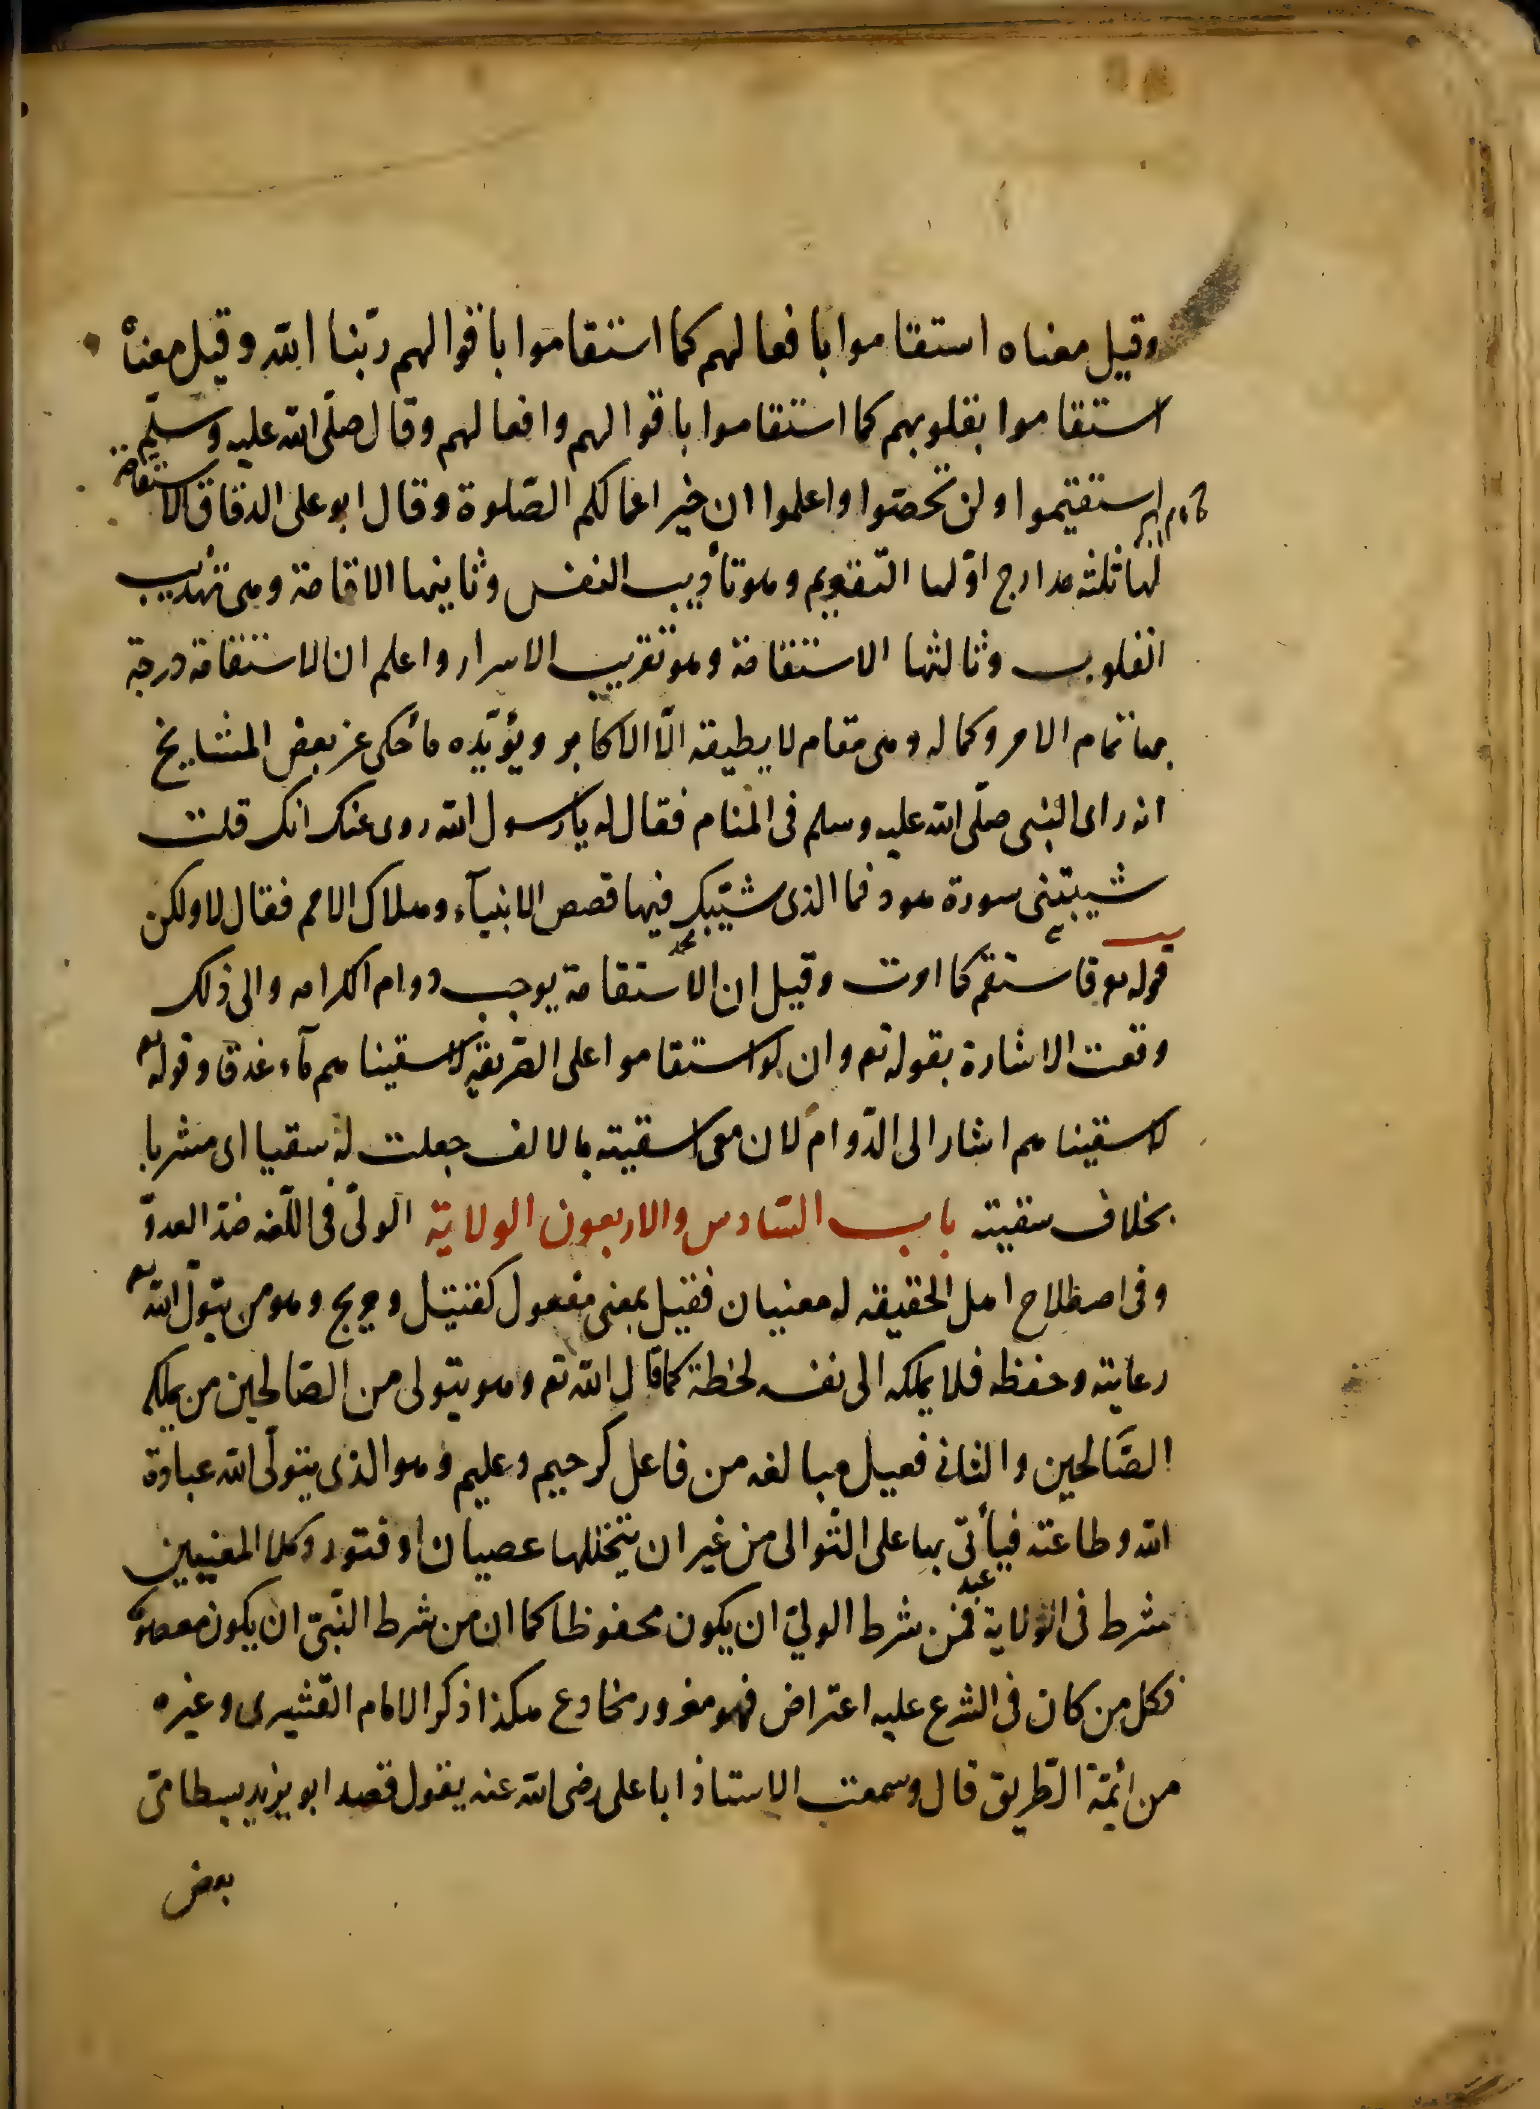 وقيل معناه استقاموا بافعالهم كما استقاموا باقوالهم ربّنا الله وقيل معناه
استقاموا بقلوبهم كما استقاموا باقوالهم وافعالهم وقال صلّى الله عليه وسلّم
استقيموا ولن تحصوا واعلموا ان خير اعمالكم الصّلوة وقال ابو على الدقاق الاستقامة
لها ثلثه مدارج اوّلها التّقويم وهو تأديب النفس وثانيها الاقامة وهى تهذيب
القلوب وثالثها الاستقامة وهو تقريب الاسرار واعلم ان الاستقامة درجة
بها تمام الامر وكماله وهى مقام لا يطيقه الّا الاكابر ويؤيّده ما حكى عن بعض المشايخ
انه راى النبى صلّى الله عليه وسلم فى المنام فقال له يا رسول الله روى عنك انك قلت
شيبتنى سورة هود فما الذى شيّبك فيها قصص الانبيآء وهلاك الامم فقال لا ولكن
قوله تع فاستقم كما امرت وقيل ان الاستقامة يوجب دوام الكرامه والى ذلك
وقعت الاشارة بقوله تع وان لو استقاموا على الطّريقة لاسقيناهم مآء غدقا وقوله تع
لاسقيناهم اشار الى الدّوام لان معى اسقيته بالالف جعلت له سقيا اى مشربا
بخلاف سقيته باب السّادس والاربعون الولاية الولّى فى اللّغه ضدّ العدوّ
وفى اصطلاح اهل الحقيقه له معنيان فقيل بمعنى مفعول كقتيل وجريح وهو من يتولّ الله تع
رعايته وحفظه فلا يكله الى نفسه لحظة كما قال الله تع وهو يتولى من الصّالحين من يكله
الصّالحين والثانى فعيل مبالغه من فاعل كرحيم وعليم وهو الذى يتولّى الله عبادة
الله وطاعته فيأتى بها على التّوالى من غير ان يتخللها عصيان او فتور وكلا المعنيين
شرط فى الولاية فمن شرط الولىّ ان يكون محفوظا كما ان من شرط النّبىّ ان يكون معصوما
فكل من كان فى الشرع عليه اعتراض فهو مغرور مخادع هكذا ذكر الامام القشيرى وغيره
من ائمّة الطّريق قال وسمعت الاستاذ ابا على رضى الله عنه يقول قصد ابو يزيد بسطامى
بعض